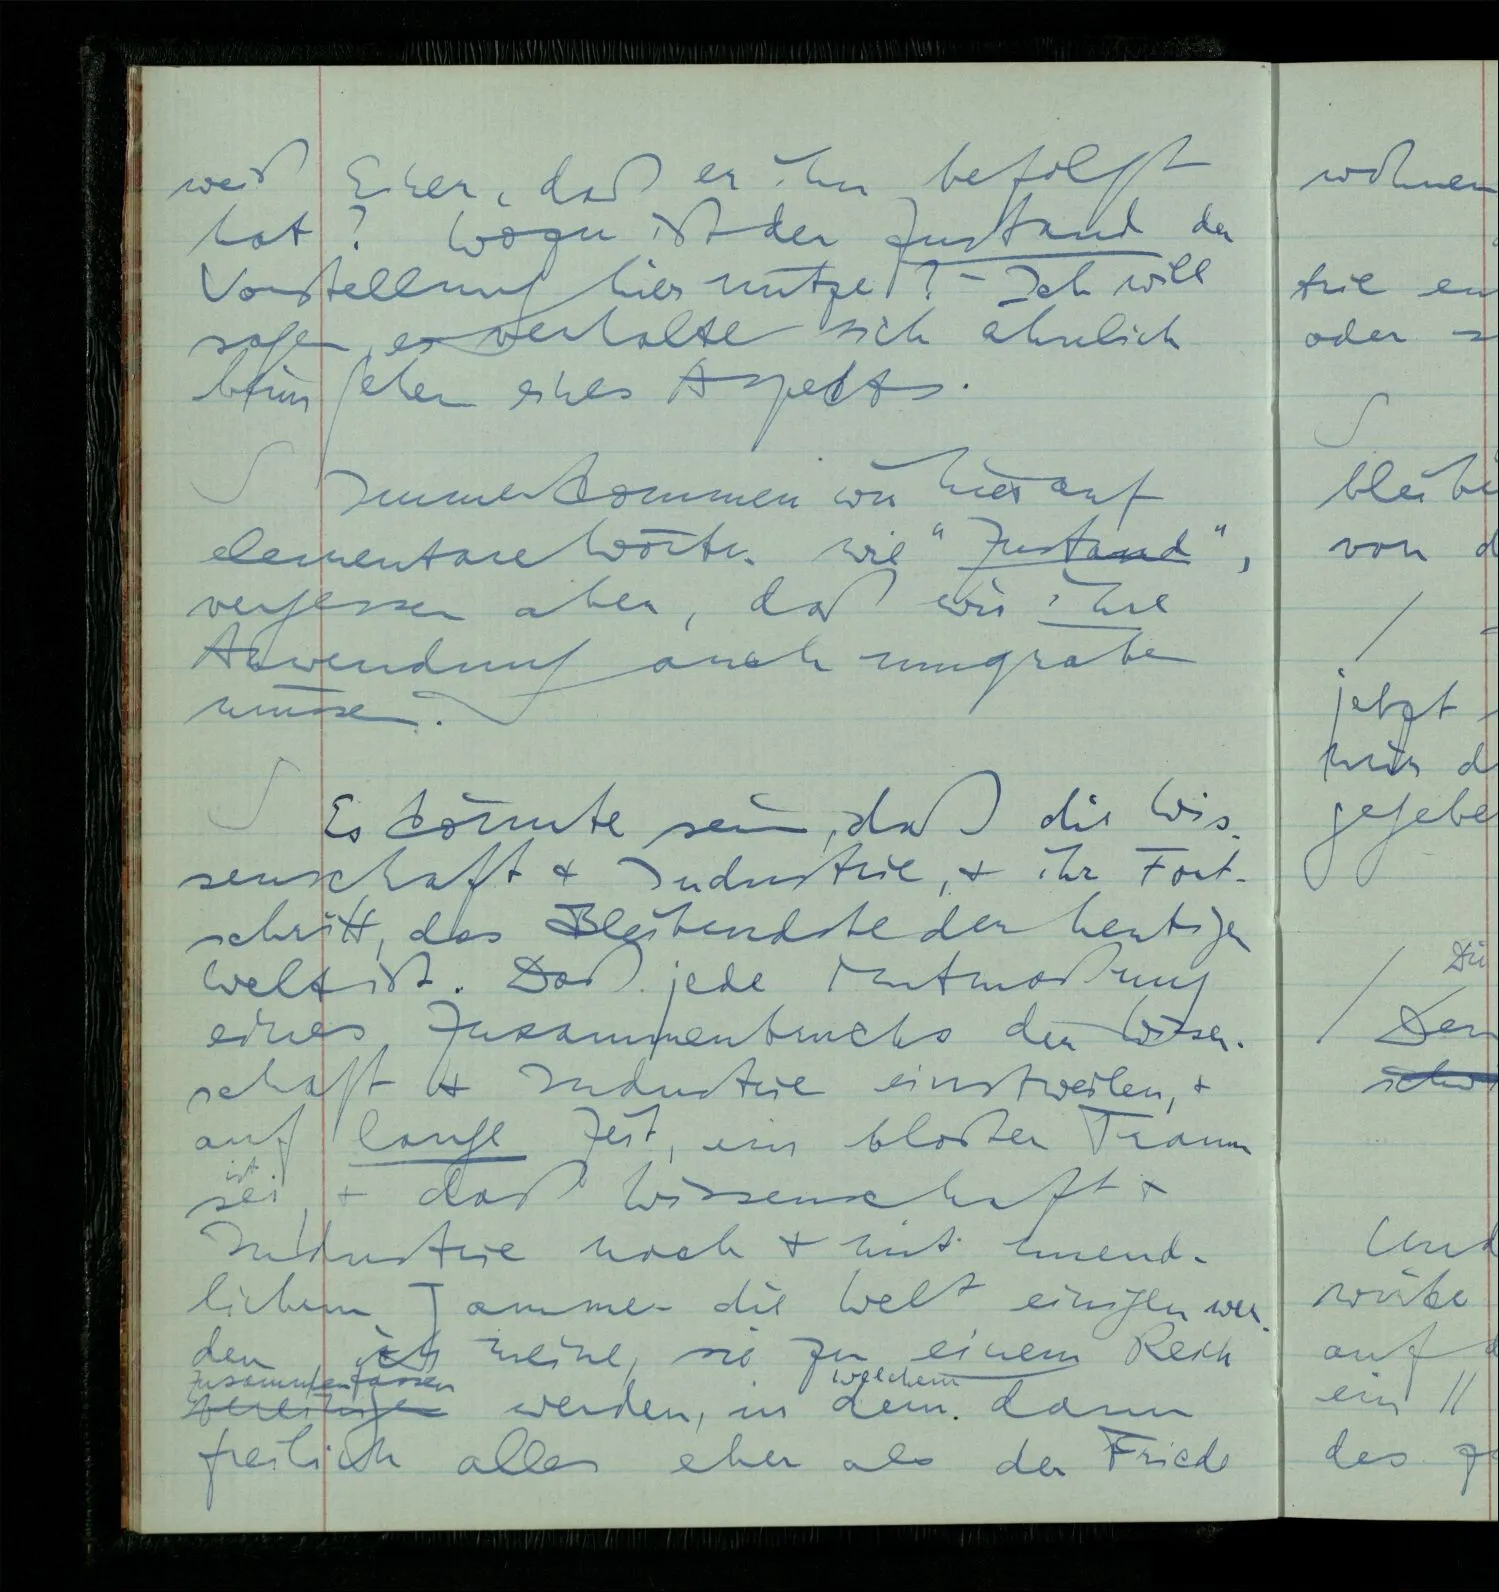 weiß Einer, daß er ihn befolgt
hat? Wozu ist der Zustand der
Vorstellung hier nütze? – Ich will
sagen, es verhalte sich ähnlich
beim sehen eines Aspekts.
Immer kommen wir hier auf
elementare Wörter wie "Zustand",
vergessen aber, daß wir ihre
Anwendung auch umgraben
müssen.
Es könnte sein, daß die Wis-
senschaft & Industrie, & ihr Fort-
schritt, das Bleibendste der heutigen
Welt ist. Daß jede Mutmaßung
eines Zusammenbruchs der Wissen-
schaft & Industrie einstweilen, &
auf lange Zeit, ein bloßer Traum
ist
sei, & daß Wissenschaft &
Industrie nach & mit unend-
lichem Jammer die Welt einigen wer-
den, ich meine, sie zu einem Reich
zusammenfassen welchem
vereinigen werden, in dem dann
freilich alles eher als der Friede
wohnen
trie
oder
bleibe
von d
jetzt
mir d
gegebe
Die
Den
Und
würde
auf d
ein //
des